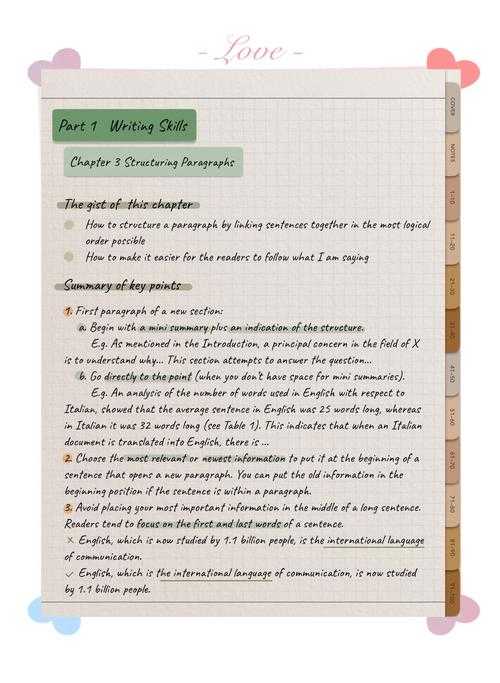 - Love -
Part 1 Writing Skills
Chapter 3 Structuring Paragraphs
The gist of this chapter
How to structure a paragraph by linking sentences together in the most logical
order possible
How to make it easier for the readers to follow what I am saying
Summary of key points
1. First paragraph of a new section:
a. Begin with a mini summary plus an indication of the structure.
E.g. As mentioned in the Introduction, a principal concern in the field of X
is to understand why... This section attempts to answer the question...
b. Go directly to the point (when you don't have space for mini summaries).
E.g. An analysis of the number of words used in English with respect to
Italian, showed that the average sentence in English was 25 words long, whereas
in Italian it was 32 words long (see Table 1). This indicates that when an Italian
document is translated into English, there is ...
2. Choose the most relevant or newest information to put it at the beginning of a
sentence that opens a new paragraph. You can put the old information in the
beginning position if the sentence is within a paragraph.
3. Avoid placing your most important information in the middle of a long sentence.
Readers tend to focus on the first and last words of a sentence.
× English, which is now studied by 1.1 billion people, is the international language
of communication.
✓ English, which is the international language of communication, is now studied
by 1.1 billion people.
COVER
NOTES
1-10
11-20
21-30
31-40
41-50
51-60
61-70
71-80
81-90
91-100